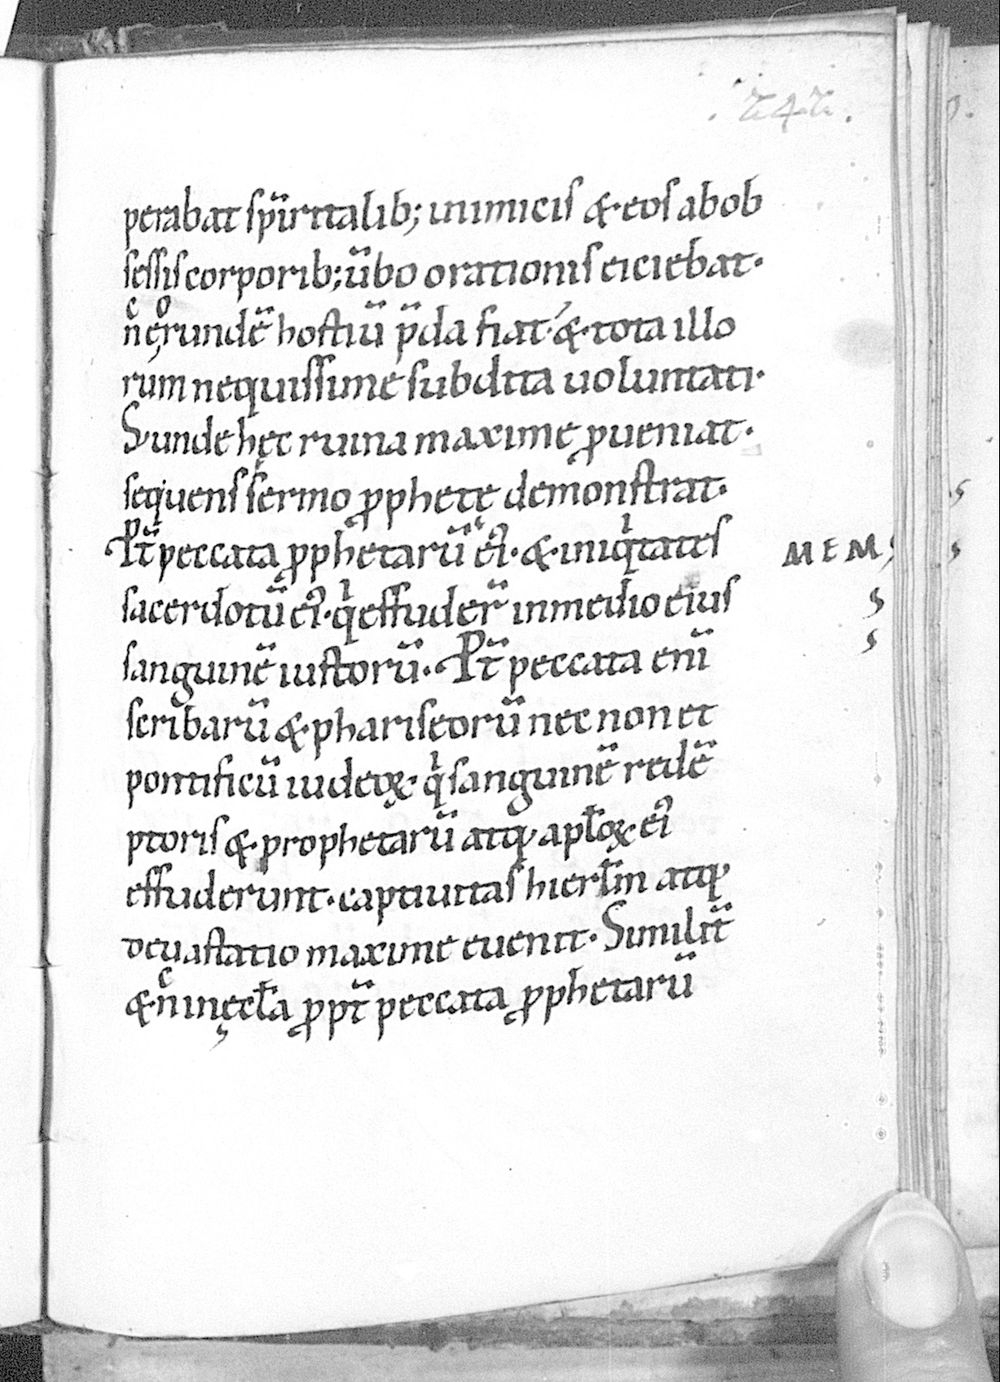 .242.
perabat sp̅iritalib; inimicis & eos ab ob
sessis corporib; u̅bo orationis eiciebat·
nc̅ gͦrunde̅ hostiu̅ p̅da fiat· & tota illo
rum nequissime subdita uoluntati·
S; unde hęc ruina maxime ꝓueniat·
seqͥuens sermo ꝓphetę demonstrat·
Ppt̅ peccata ꝓphetaru̅ ei᾽· & iniqͥtates MEM
sacerdotu̅ ei᾽· qͥ effuder̅ in medio eius
sanguine̅ iustoru̅· Ppt̅ peccata eni̅
scribaru̅ & phariseoru̅ nec non et
pontificu̅ iudeoꝝ· qͥ sanguine̅ rede̅
ptoris & prophetaru̅ atq; apl̅oꝝ ei᾽
effuderunt· captiuitas hierl̅m atq;
deuastatio maxime euenit· Similit̅
& nc̅ in ęccl̅a ꝓpt̅ peccata ꝓphetaru̅